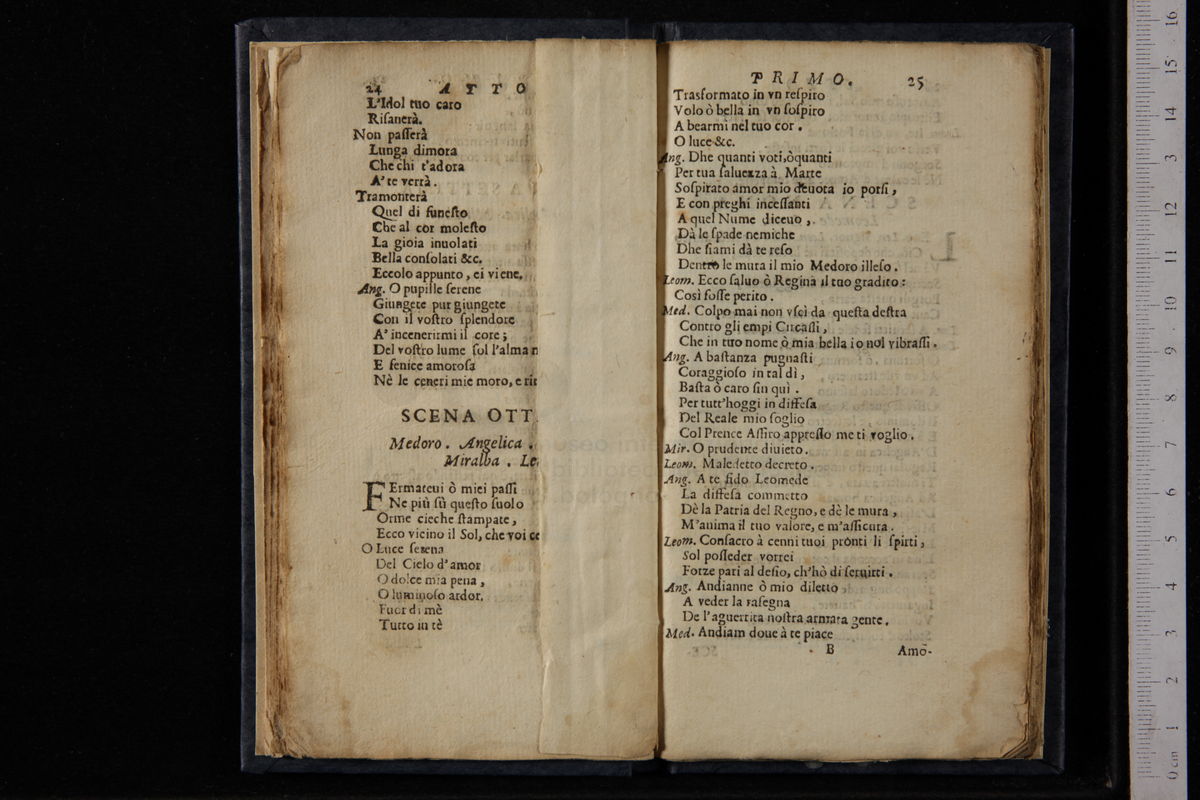 24 ATTO
L'Idol tuo caro
Risanerà.
Non passerà
Lunga dimora
Che chi t'adora
A' te verrà.
Tramonterà
Quel di funesto
Che al cor molesto
La gioia inuolati
Bella consolati &c.
Eccolo appunto, ei viene.
Ang. O pupille serene
Giungete pur giungete
Con il vostro splendore
A' incenerirmi il core;
Del vostro lume sol l'alma
E fenice amorosa
Nè le ceneri mie moro, e
SCENA OTT
Medoro. Angelica.
Miralba.
FErmateui ò miei passi
Ne più sù questo suolo
Orme cieche stampate,
Ecco vicino il Sol, che voi
O Luce serena
Del Cielo d'amor
O dolce mia pena,
O luminoso ardor.
Fuor di mè
Tutto in tè
PRIMO. 25
Trasformato in vn respiro
Volo ò bella in vn sospiro
A bearmi nel tuo cor.
O luce &c.
Ang. Dhe quanti voti, ò quanti
Per tua saluezza à Marte
Sospirato amor mio deuota io porsi,
E con preghi incessanti
A quel Nume diceuo,
Dà le spade nemiche
Dhe siami dà te reso
Dentro le mura il mio Medoro illeso.
Leom. Ecco saluo ò Regina il tuo gradito:
Così fosse perito.
Med. Colpo mai non vscì da questa destra
Contro gli empi Circassi,
Che in tuo nome ò mia bella io nol vibrassi.
Ang. A bastanza pugnasti
Coraggioso in tal dì,
Basta ò caro sin quì.
Per tutt'hoggi in diffesa
Del Reale mio soglio
Col Prence Assiro appresso me ti voglio.
Mir. O prudente diuieto.
Leom. Maledetto decreto.
Ang. A te fido Leomede
La diffesa commetto
Dè la Patria del Regno, e dè le mura,
M'anima il tuo valore, e m'assicura.
Leom. Consacro à cenni tuoi pronti li spirti,
Sol posseder vorrei
Forze pari al desio, ch'hò di seruirti.
Ang. Andianne ò mio diletto
A veder la rasegna
De l'aguerrita nostra armata gente.
Med. Andiam doue à te piace
B Amo-